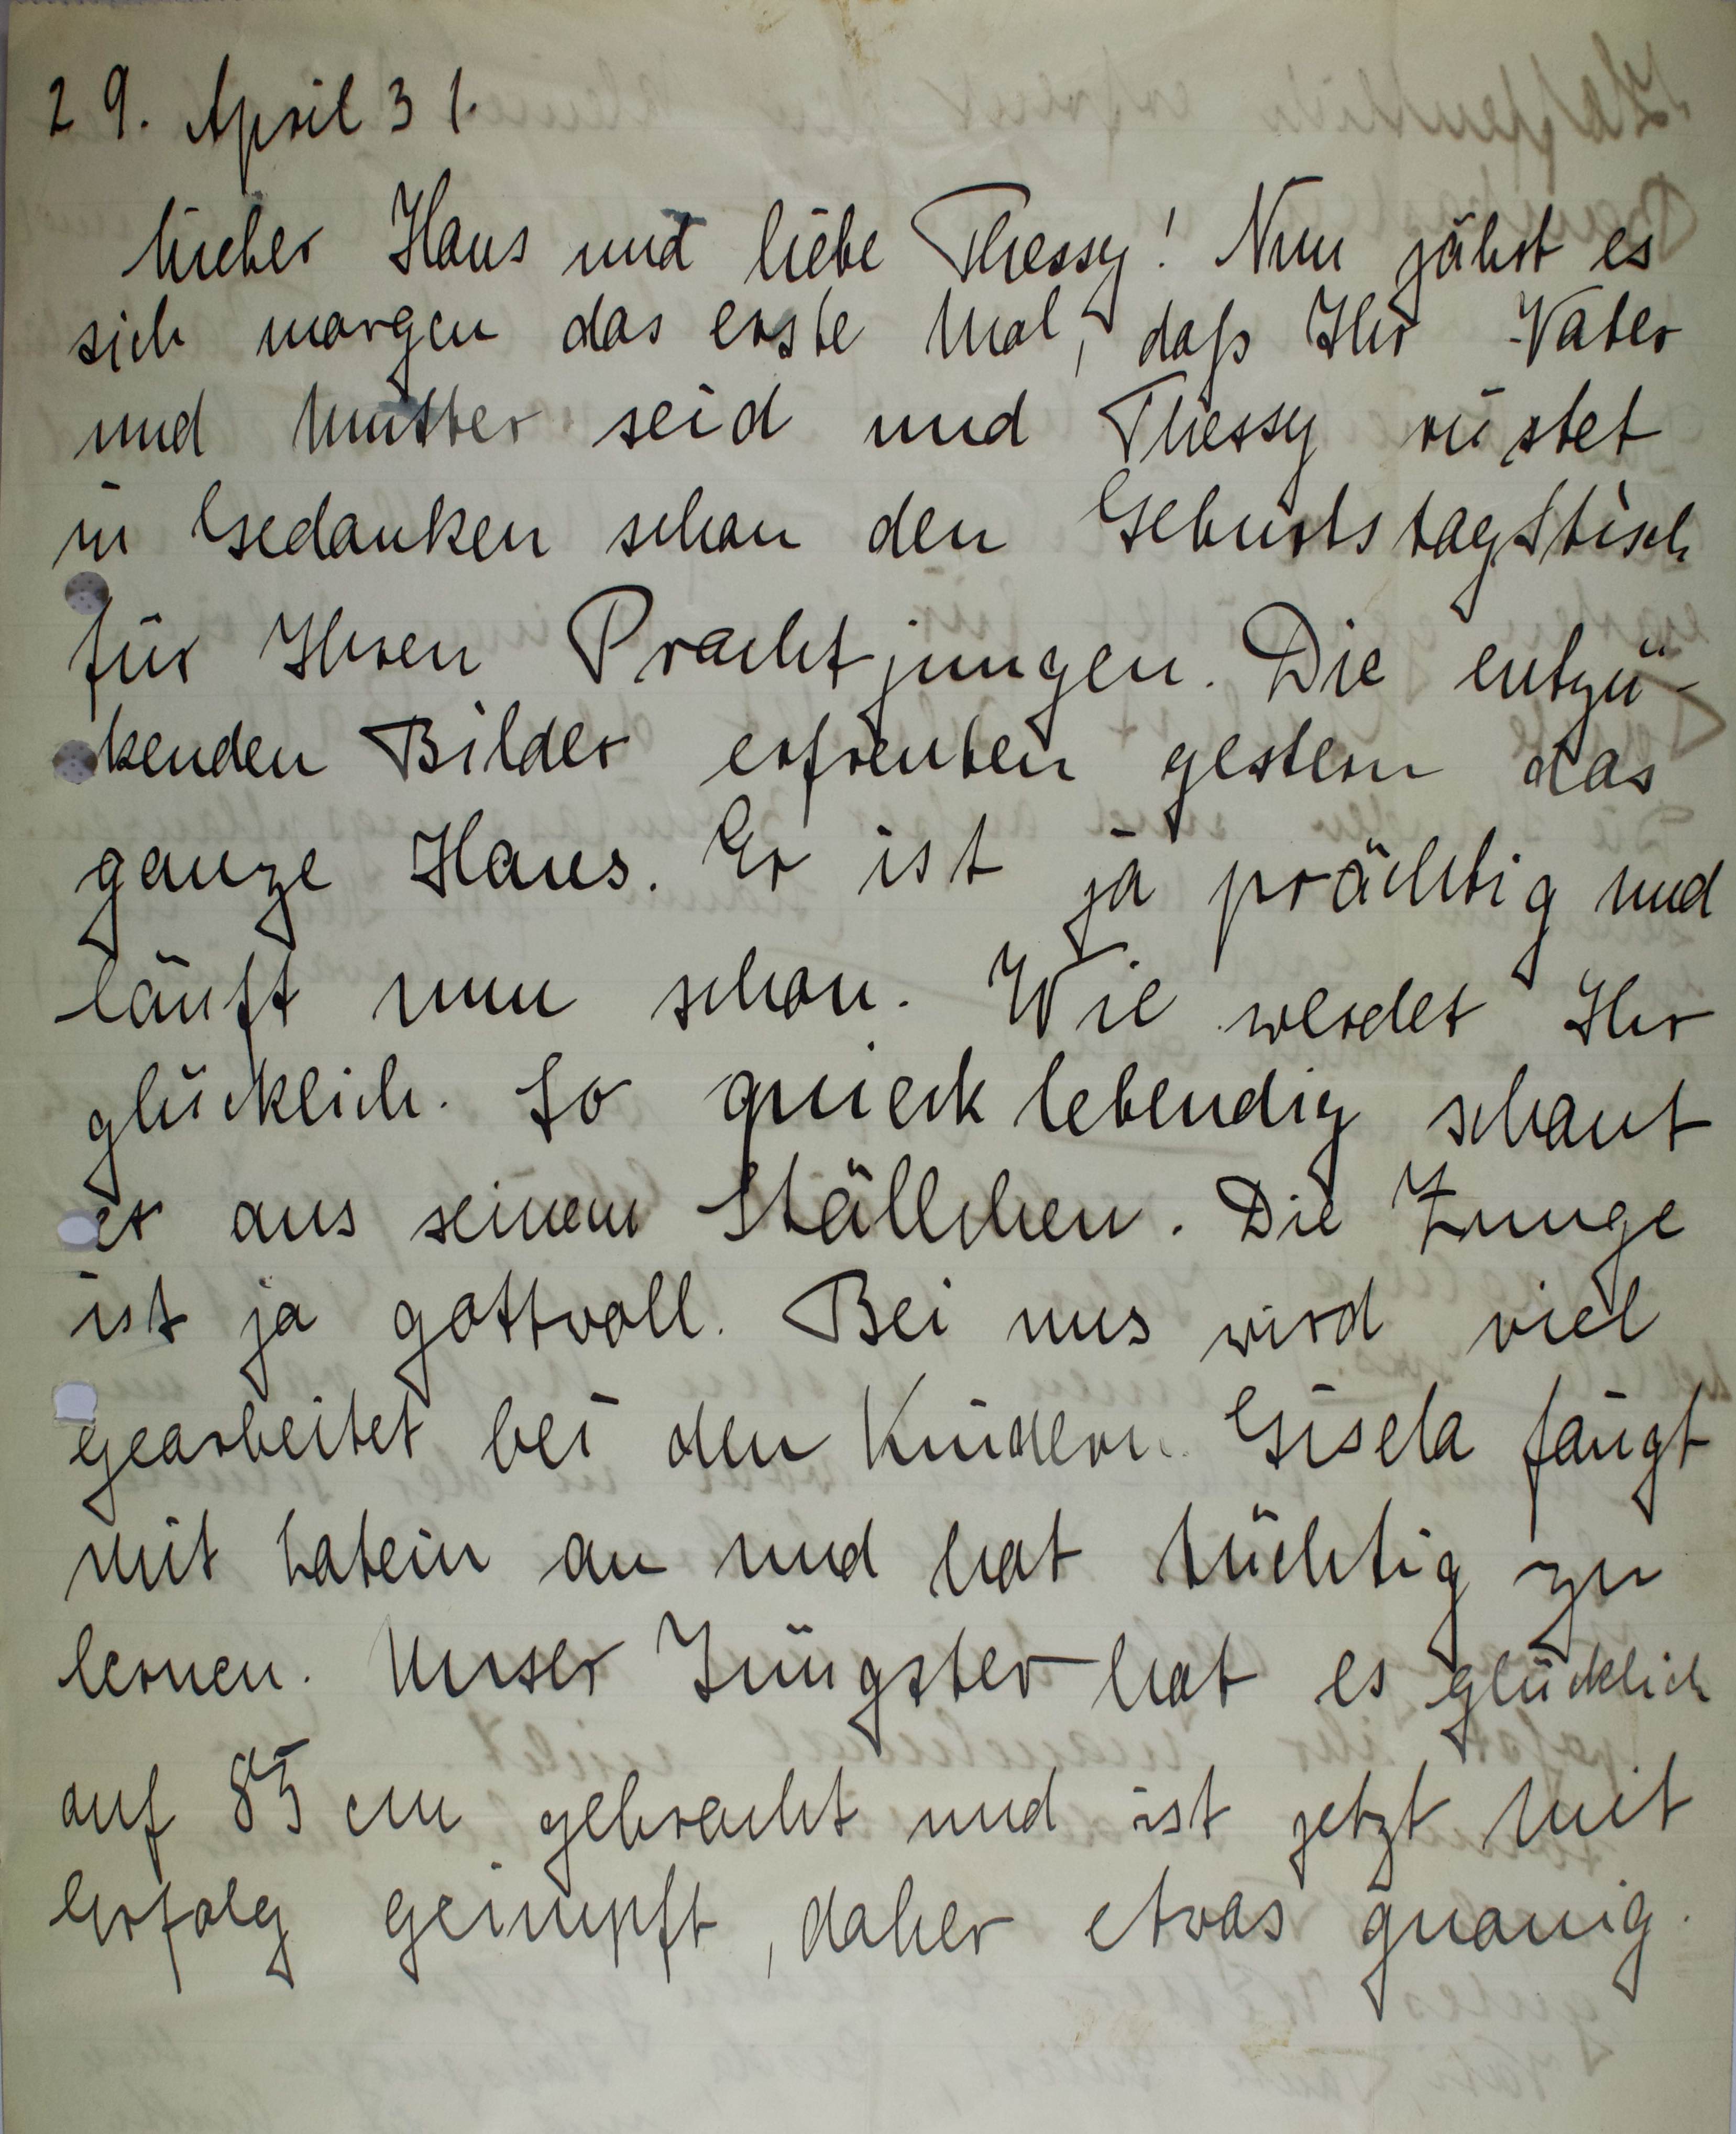 29. April 31.
Lieber Hans und liebe Thessy! Nun jährt es
sich morgen das erste Mal, daß Ihr Vater
und Mutter seid und Thessy rüstet
in Gedanken schon den Geburtstagstisch
für Ihren Prachtjungen. Die entzü-
kenden Bilder erfreuten gestern das
ganze Haus. Er ist ja prächtig und
läuft nun schon. Wie werdet Ihr
glücklich. So quieck lebendig schaut
er aus seinem Ställchen. Die Zunge
ist ja gottvoll. Bei uns wird viel
gearbeitet bei den Kindern. Gisela fängt
mit Latein an und hat tüchtig zu
lernen. Unser Jüngster hat es glücklich
auf 85 cm gebracht und ist jetzt mit
Erfolg geimpft, daher etwas gnauig.